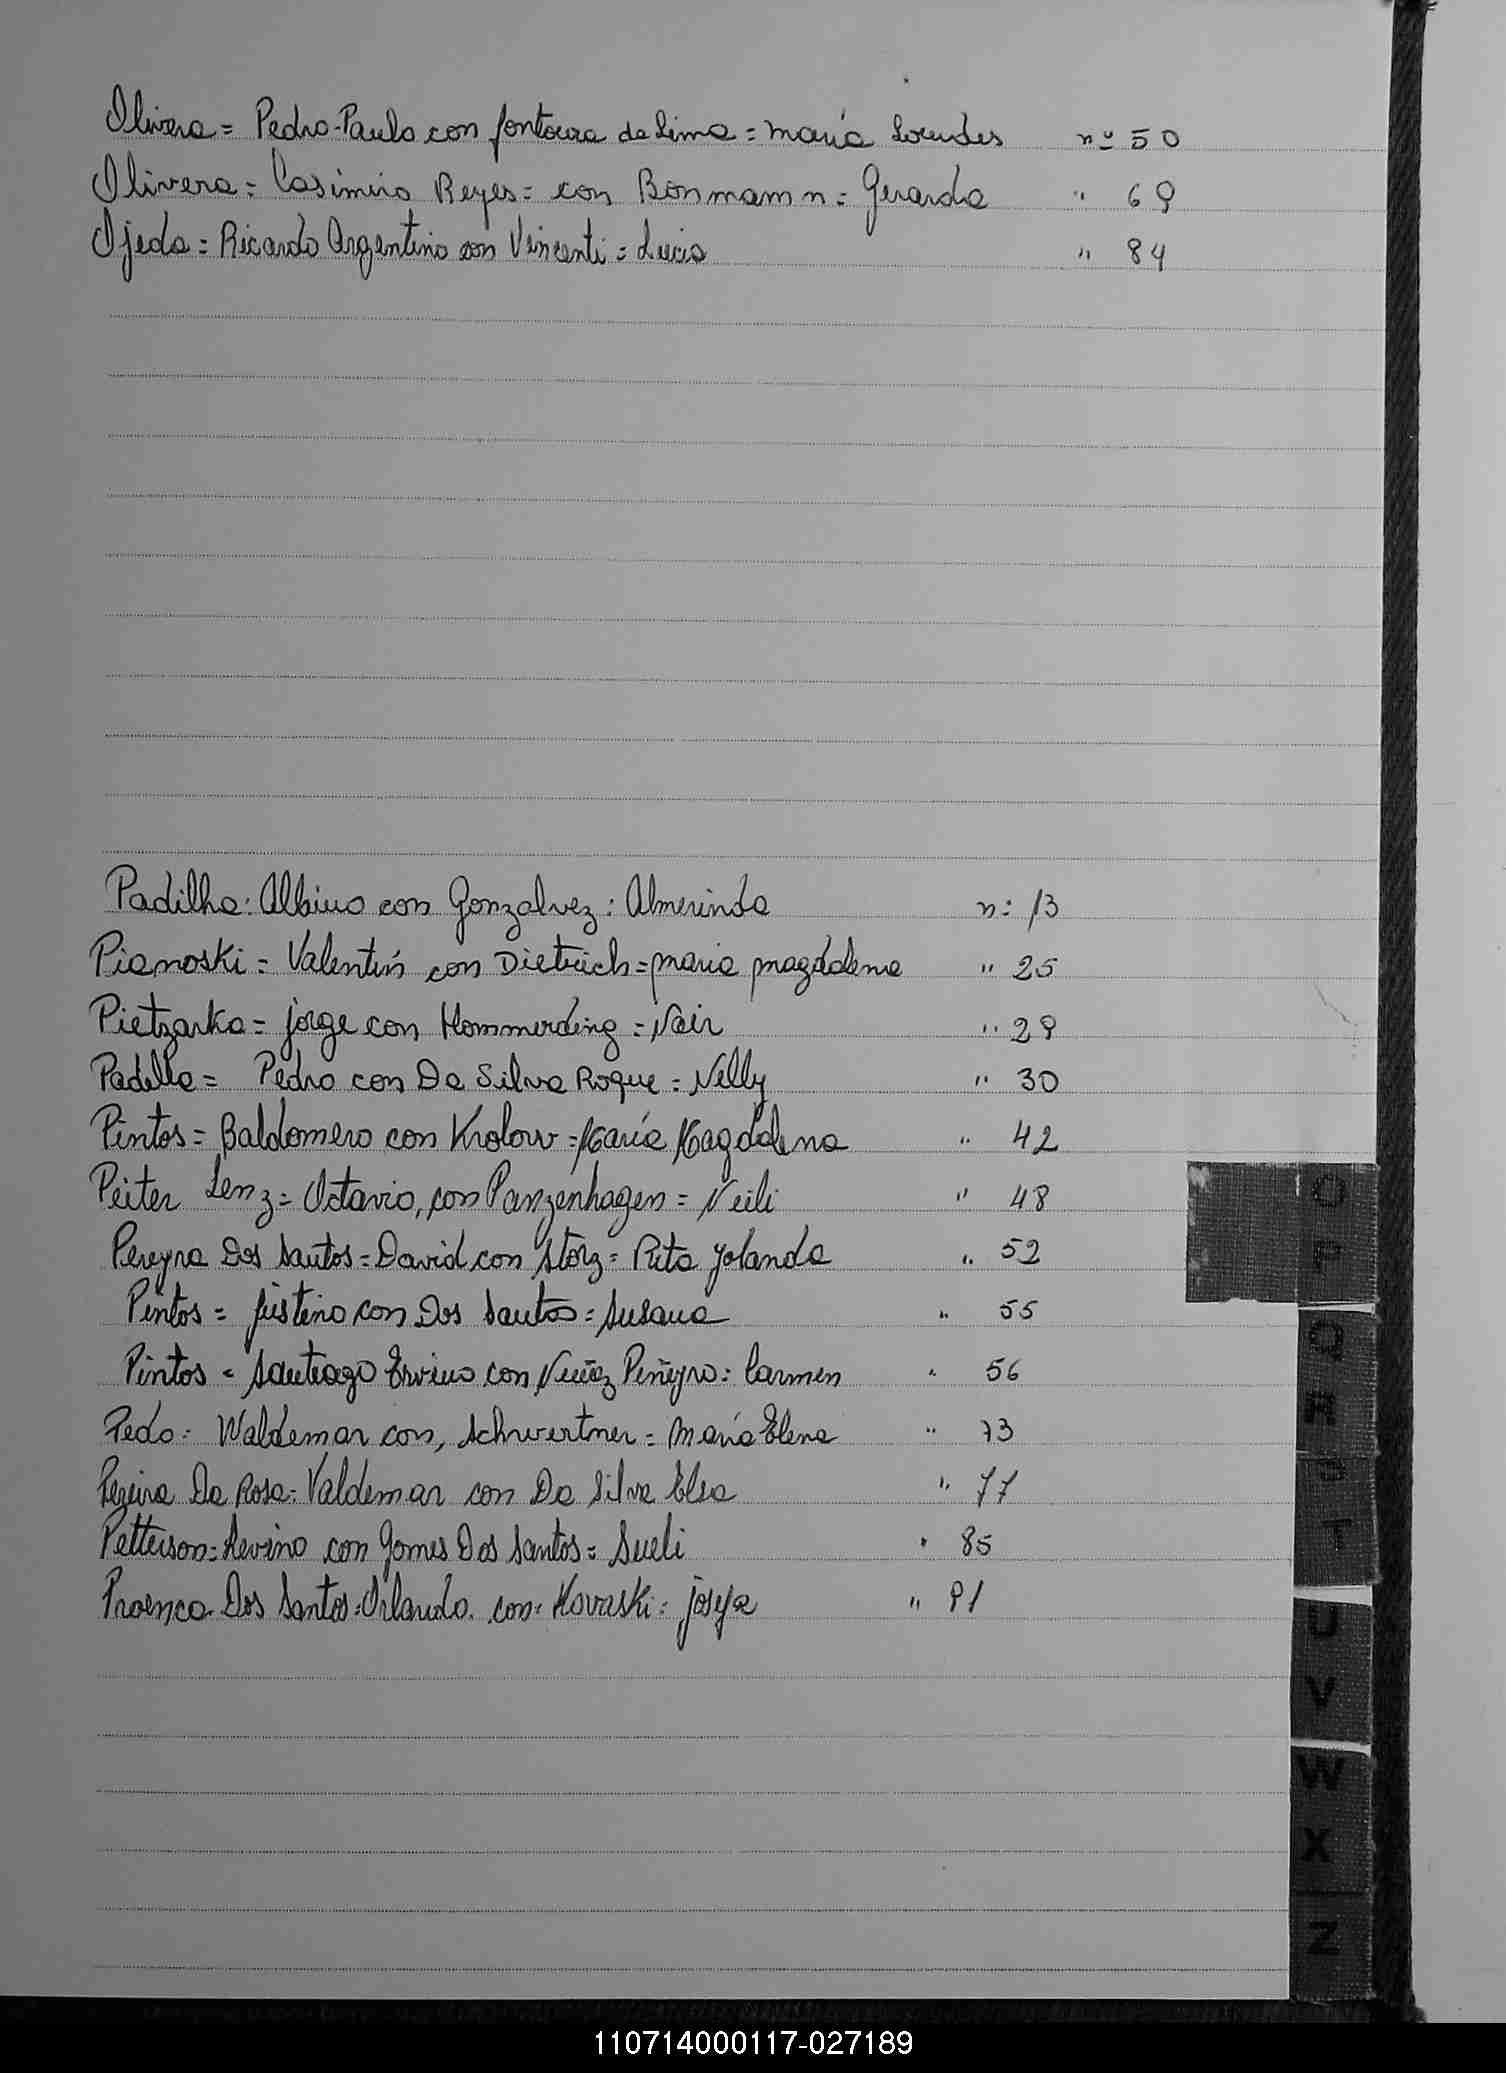 Olivera = Pedro-Paulo con fontoura da Lima = maría Lourdes nº 50
Olivera = Casimiro Reyes = con Bonmann = Gerarda " 69
Ojeda = Ricardo Argentino con Vincenti = Lucia " 84
Padilha: Albino con Gonzalvez: Almerinda n: 13
Pianoski = Valentín con Dietrich = maria magdalena " 25
Pietzarka = jorge con Hommerding = Nair " 29
Padilla = Pedro con Da Silva Roque = Nelly " 30
Pintos = Baldomero con Krolow = María Magdalena " 42
Peiter Lenz = Octavio, con Panzenhagen = Neili " 48
Pereyra Dos Santos = David con Storz = Rita Yolanda " 52
Pintos = Justino con Dos Santos = Susana " 55
Pintos = Santiago Ervino con Nuñez Piñeyro: Carmen " 56
Pedo: Waldemar con, Schwertner = María Elena " 73
Da Rosa: Valdemar con Da Silva Elsa " 77
Petterson = con Gomes Dos Santos = Sueli " 85
Proenca Dos Santos: Orlando. con: Kovaski: " 91
O
P
Q
R
S
T
U
V
W
X
Z
110714000117-027189